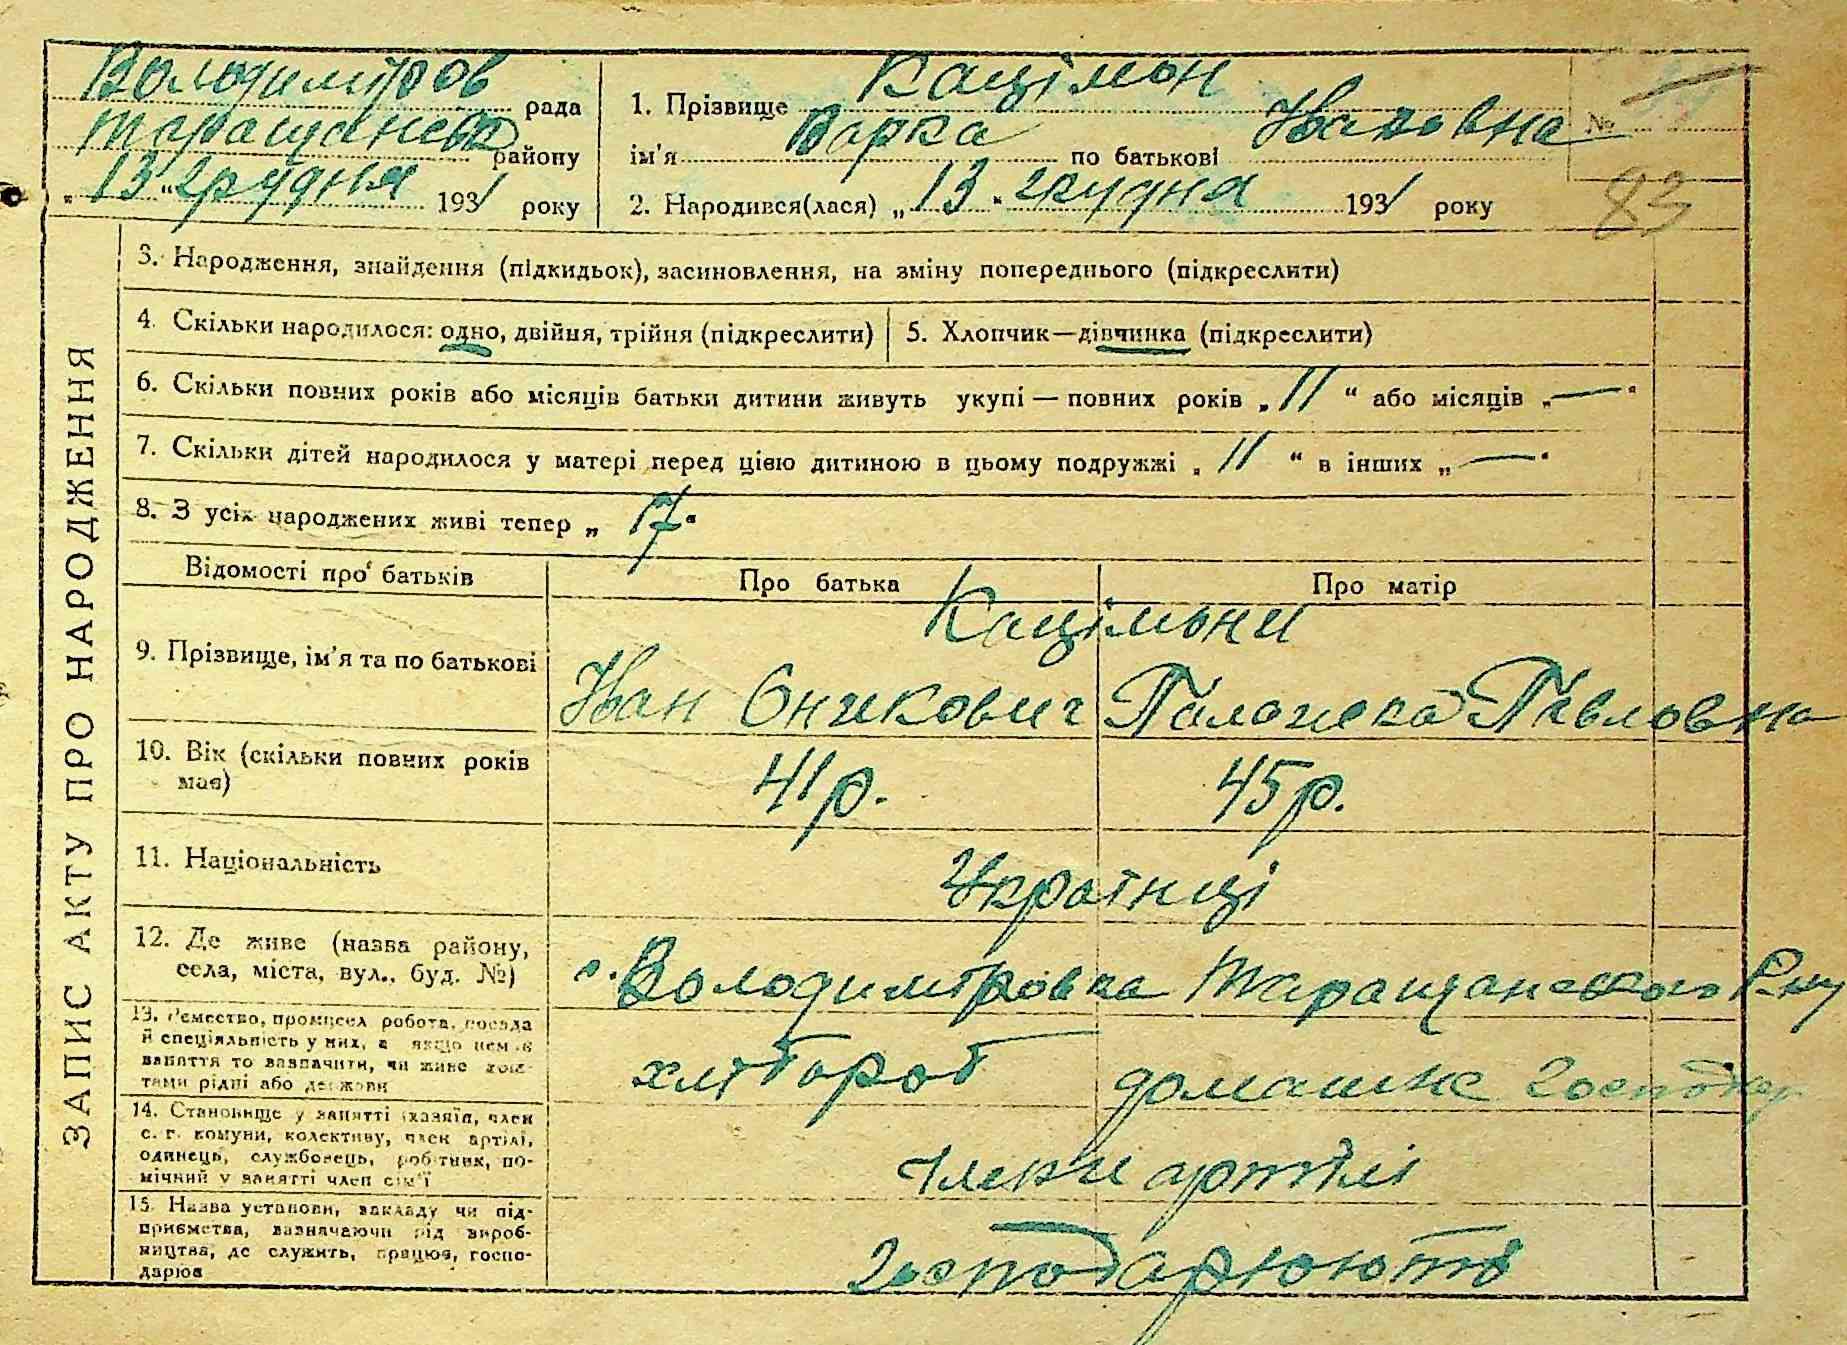 Володимтров рада
Таращанськ району
„ 13 “ грудня 1931 року
1. Прізвище Кацімон
ім'я Варка по батькові Івановна
№
2. Народився(лася) „ 13 “ грудня 1931 року
83
ЗАПИС АКТУ ПРО НАРОДЖЕННЯ
3. Народження, знайдення (підкидьок), засиновлення, на зміну попереднього (підкреслити)
4. Скільки народилося: одно, двійня, трійня (підкреслити)
5. Хлопчик—дівчинка (підкреслити)
6. Скільки повних років або місяців батьки дитини живуть укупі — повних років „ 11 “ або місяців „ — “
7. Скільки дітей народилося у матері перед цією дитиною в цьому подружжі „ 11 “ в інших „ — “
8. З усіх народжених живі тепер „
Відомості про батьків
Про батька
Про матір
9. Прізвище, ім'я та по батькові
Кацімони
Іван Оникович
Палажка Павловна
10. Вік (скільки повних років
має)
41р.
45р.
11. Національність
Українці
12. Де живе (назва району,
села, міста, вул., буд. №)
с. Володимтровка Таращанського Р-ну
13. Ремество, промисел робота, посада
й спеціяльність у них, а якщо нема
заняття то зазначити, чи живе кош-
тами рідні або держави
хлібороб
домашнє господар
14. Становище у занятті (хазяїн, член
с. г. комуни, колективу, член артілі,
одинець, службовець, робітник, по-
мічний у занятті член сім'ї
члени артілі
15. Назва установи, закладу чи під-
приємства, зазначаючи рід вироб-
ництва, де служить, працює, госпо-
дарює
господарюють